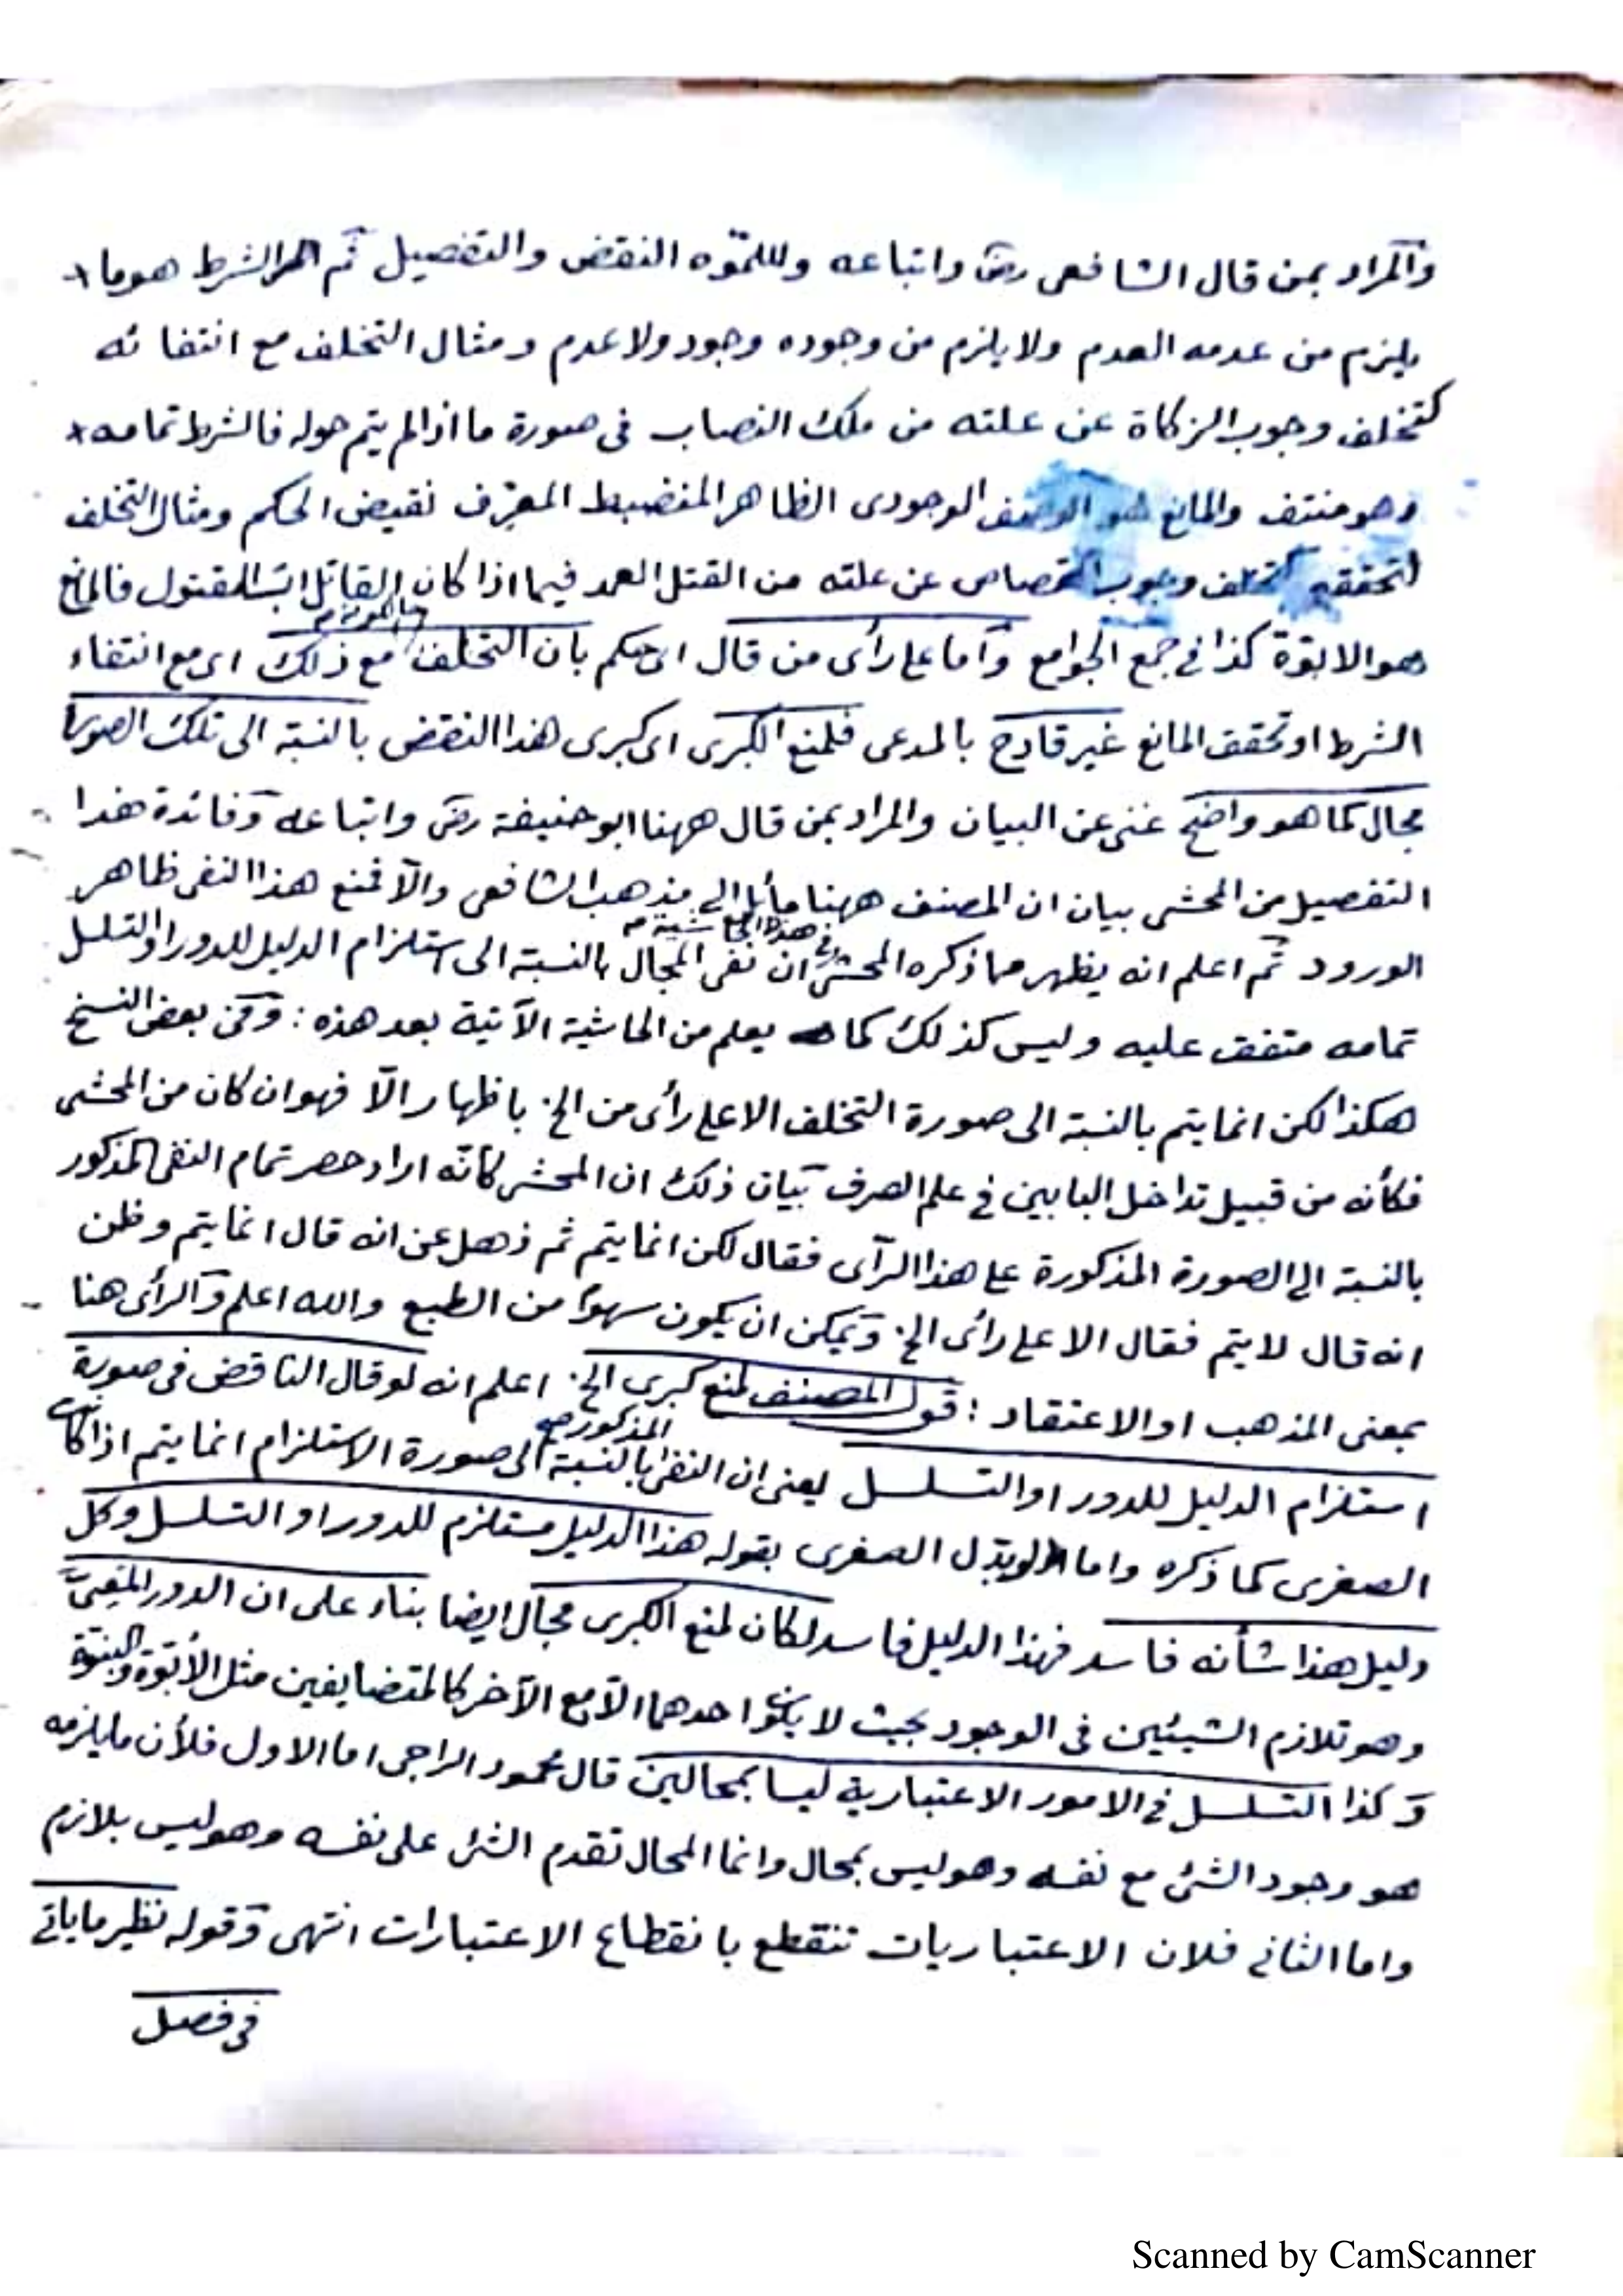 والمراد بمن قال الشافعى رض واتباعه النقض والتفصيل ثم الشرط هو ما
يلزم من عدمه العدم ولا يلزم من وجوده وجود ولا عدم ومثال التخلف مع انتفائه
كتخلف وجوب الزكاة عن علته من ملك النصاب فى صورة ما اذا لم يتم حوله فالشرط تمامه
وهو منتف والمانع هو الوصف الوجودى الظاهر المنضبط المعرف نقيض الحكم ومثال التخلف
لتحققه كتخلف وجوب القصاص عن علته من القتل العمد فيما اذا كان القاتل اب المقتول فالمانع
هو الابوة كذا فى جمع الجوامع واما على رأى من قال اى حكم بان التخلف مع ذلك اى مع انتفاء
الشرط او تحقق المانع غير قادح بالمدعى فلمنع الكبرى اى كبرى هذا النقض بالنسبة الى تلك الصورة
مجال كما هو واضح غنى عن البيان والمراد بمن قال ههنا ابو حنيفة رض واتباعه وفائدة هذا
التفصيل من المحشى بيان ان المصنف ههنا مائل الى مذهب الشافعى والا فمنع هذا النفى ظاهر
الورود ثم اعلم انه يظهر مما ذكره المحشى فى هذا الحاشية ان نفى المجال بالنسبة الى استلزام الدليل للدور او التسلسل
تمامه متفق عليه وليس كذلك كما يعلم من الحاشية الآتية بعد هذه : وفى بعض النسخ
هكذا لكن انما يتم بالنسبة الى صورة التخلف الا على رأى من الخ باظهار الا فهو ان كان من المحشى
فكأنه من قبيل تداخل البابين فى علم الصرف بيان ذلك ان المحشى كأنه اراد حصر تمام النفى المذكور
بالنسبة الى الصورة المذكورة على هذا الرأى فقال لكن انما يتم ثم ذهل عن انه قال انما يتم وظن
انه قال لا يتم فقال الا على رأى الخ ويمكن ان يكون سهوا من الطبع والله اعلم والرأى هنا
بمعنى المذهب او الاعتقاد : قول المصنف لمنع كبرى الخ اعلم انه لو قال الناقض فى صورة
استلزام الدليل للدور او التسلسل يعنى ان النفى المذكور بالنسبة الى صورة الاستلزام انما يتم اذا كانت
الصغرى كما ذكره واما لو بدل الصغرى بقوله هذا الدليل مستلزم للدور او التسلسل وكل
دليل هذا شأنه فاسد فهذا الدليل فاسد لكان لمنع الكبرى مجال ايضا بناء على ان الدور المعى
وهو تلازم الشيئين فى الوجود بحيث لا يكون احدهما الا مع الآخر كالمتضايفين مثل الأبوة والبنوة
وكذا التسلسل فى الامور الاعتبارية ليسا بمحالين قال محمود الراجى اما الاول فلأن ما يلزمه
هو وجود الشئ مع نفسه وهو ليس بمحال وانما المحال تقدم الشئ على نفسه وهو ليس بلازم
واما الثانى فلان الاعتباريات تنقطع بانقطاع الاعتبارات انتهى وقوله نظير ما يأتى
فى فصل
Scanned by CamScanner